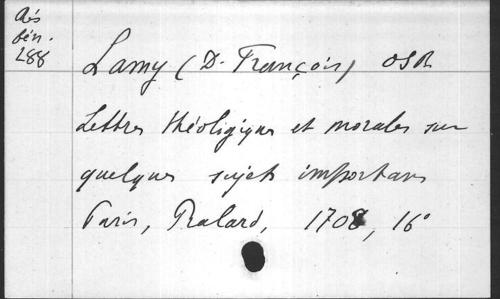 Rés
bén.
288
Lamy (D. François) OSB
Lettres théologiques et morales sur
quelques sujets importans
Paris, Pralard, 1708, 16°